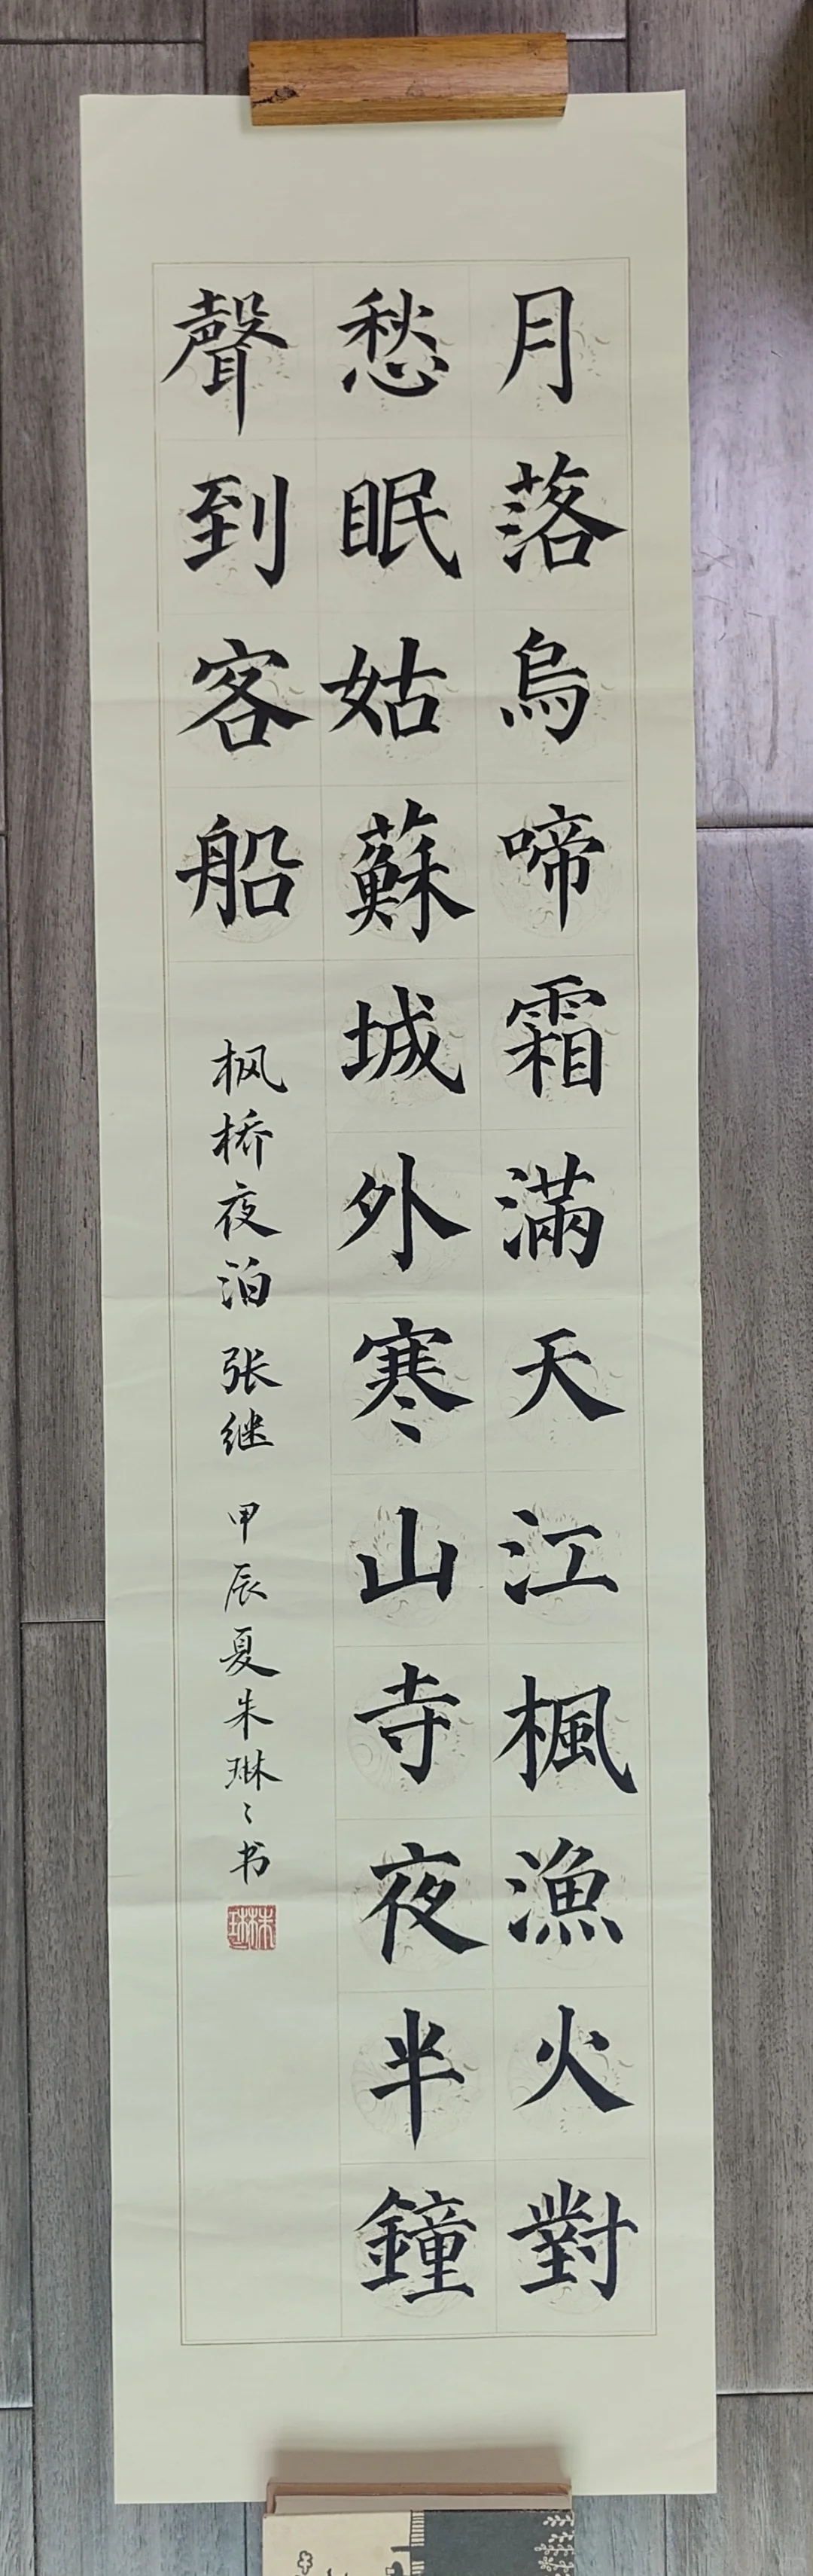 月落烏啼霜滿天江楓漁火對
愁眠姑蘇城外寒山寺夜半鐘
聲到客船
枫桥夜泊 张继 甲辰夏朱琳〻书